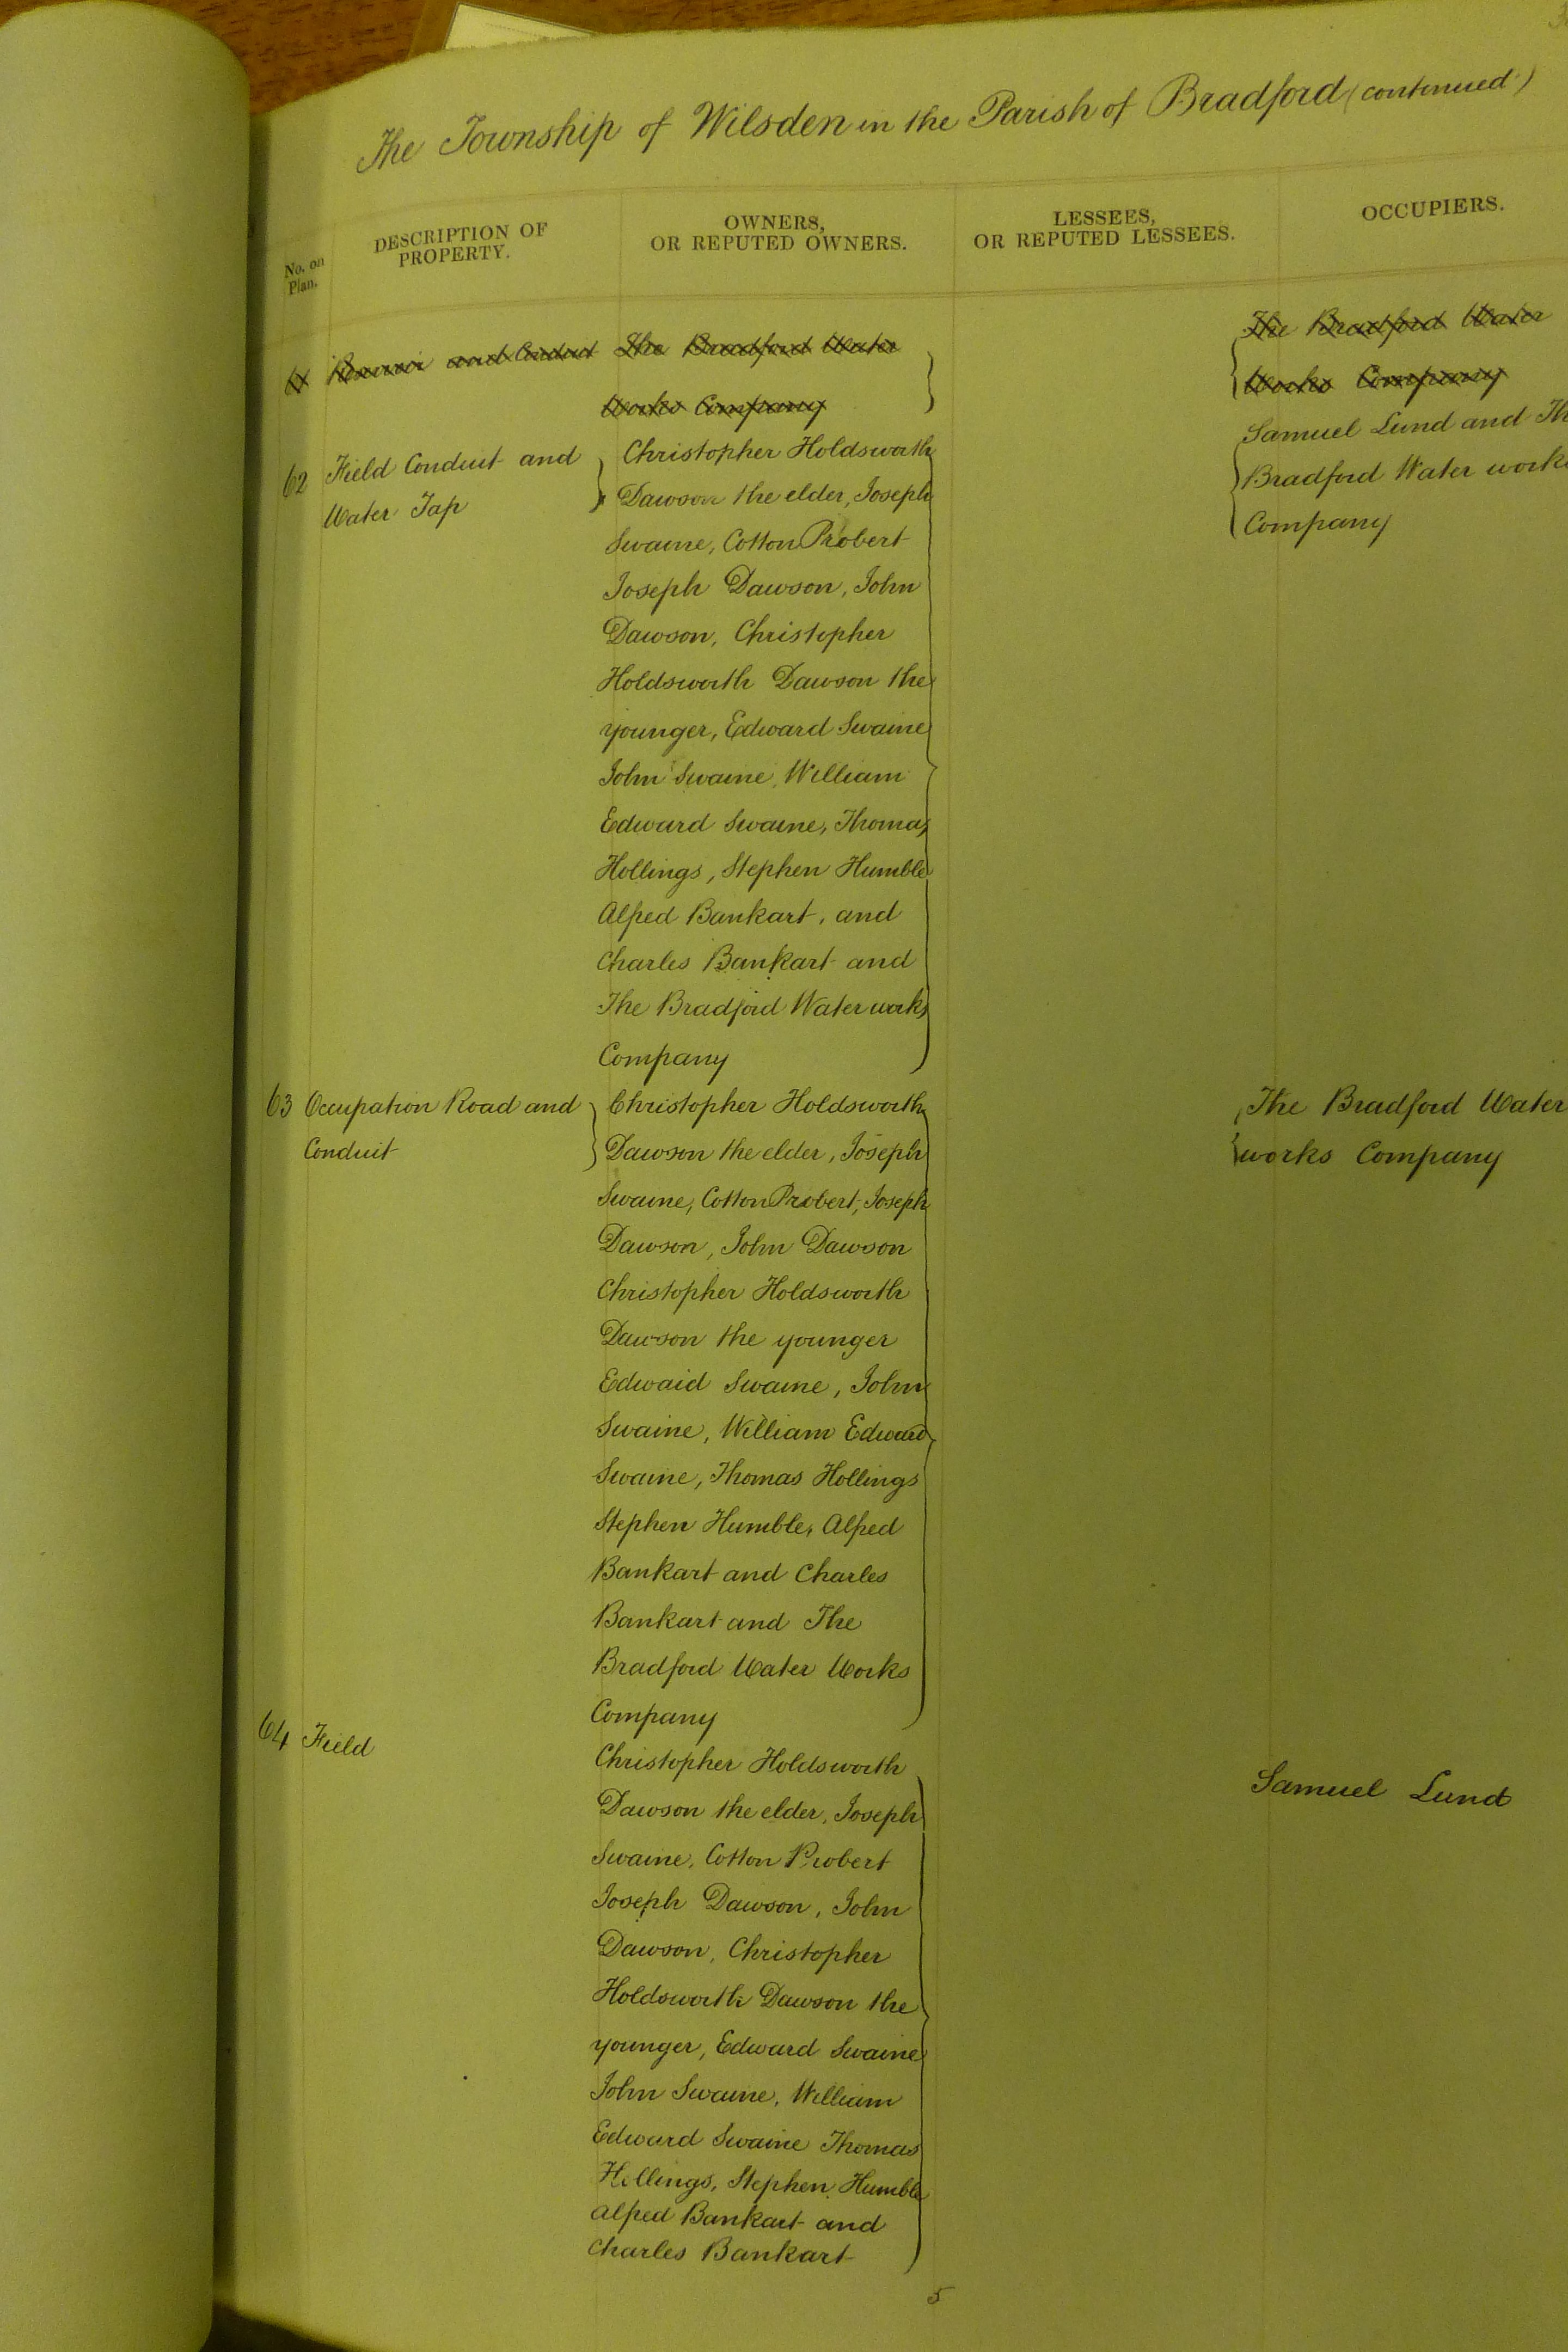 The Township of Wilsden in the Parish of Bradford (continued)
No. on
Plan.
DESCRIPTION OF
PROPERTY.
OWNERS,
OR REPUTED OWNERS.
LESSEES,
OR REPUTED LESSEES.
OCCUPIERS.
and Conduit
The Bradford Water
Works Company
The Bradford Water
Works Company
62 Field Conduit and
Water Tap
Christopher Holdsworth
Dawson the elder, Joseph
Swaine, Cotton Probert
Joseph Dawson, John
Dawson, Christopher
Holdsworth Dawson the
younger, Edward Swaine
John Swaine, William
Edward Swaine, Thomas
Hollings, Stephen Humble
Alfred Bankart, and
Charles Bankart and
The Bradford Water works
Company
Samuel Lund and
Bradford Water works
Company
63 Occupation Road and
Conduit
Christopher Holdsworth
Dawson the elder, Joseph
Swaine, Cotton Probert, Joseph
Dawson, John Dawson
Christopher Holdsworth
Dawson the younger
Edward Swaine, John
Swaine, William Edward
Swaine, Thomas Hollings
Stephen Humble, Alfred
Bankart and Charles
Bankart and The
Bradford Water Works
Company
The Bradford Water
works Company
64 Field
Christopher Holdsworth
Dawson the elder, Joseph
Swaine, Cotton Probert
Joseph Dawson, John
Dawson, Christopher
Holdsworth Dawson the
younger, Edward Swaine
John Swaine, William
Edward Swaine Thomas
Hollings, Stephen Humble
Alfred Bankart and
Charles Bankart
Samuel Lund
5